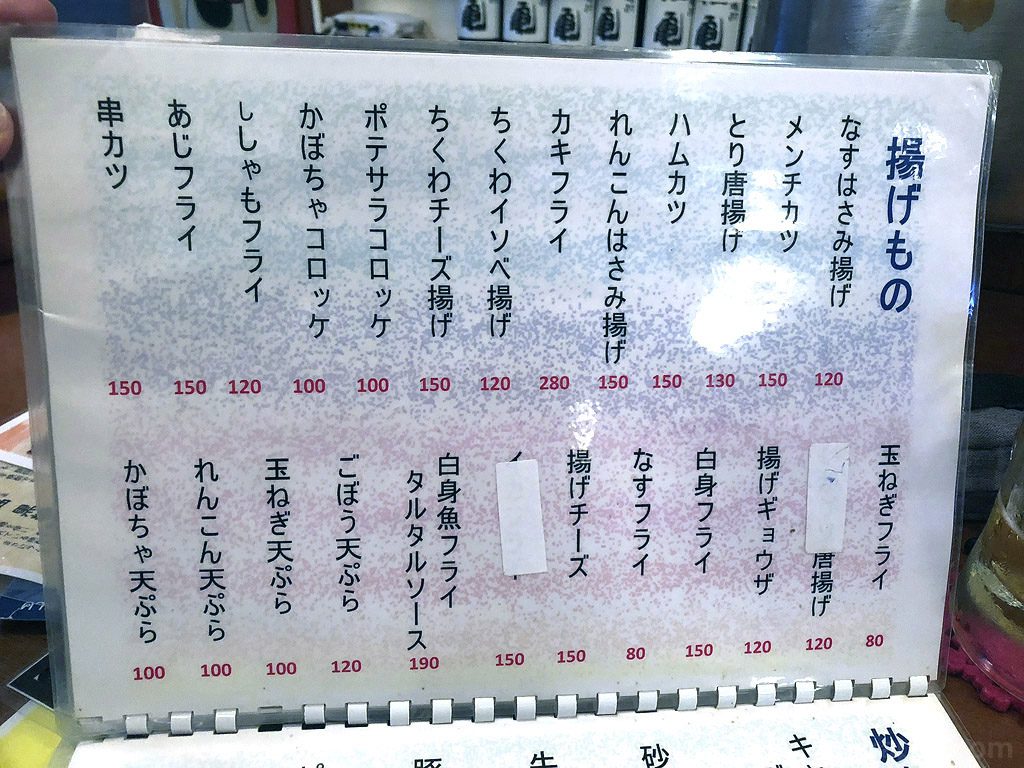 揚げもの
なすはさみ揚げ 120
メンチカツ 150
とり唐揚げ 130
ハムカツ 150
れんこんはさみ揚げ 150
カキフライ 280
ちくわイソベ揚げ 120
ちくわチーズ揚げ 150
ポテサラコロッケ 100
かぼちゃコロッケ 100
ししゃもフライ 120
あじフライ 150
串カツ 150
玉ねぎフライ 80
唐揚げ 120
揚げギョウザ 120
白身フライ 150
なすフライ 80
揚げチーズ 150
150
白身魚フライ
タルタルソース 190
ごぼう天ぷら 120
玉ねぎ天ぷら 100
れんこん天ぷら 100
かぼちゃ天ぷら 100
炒
キ
砂
牛
豚